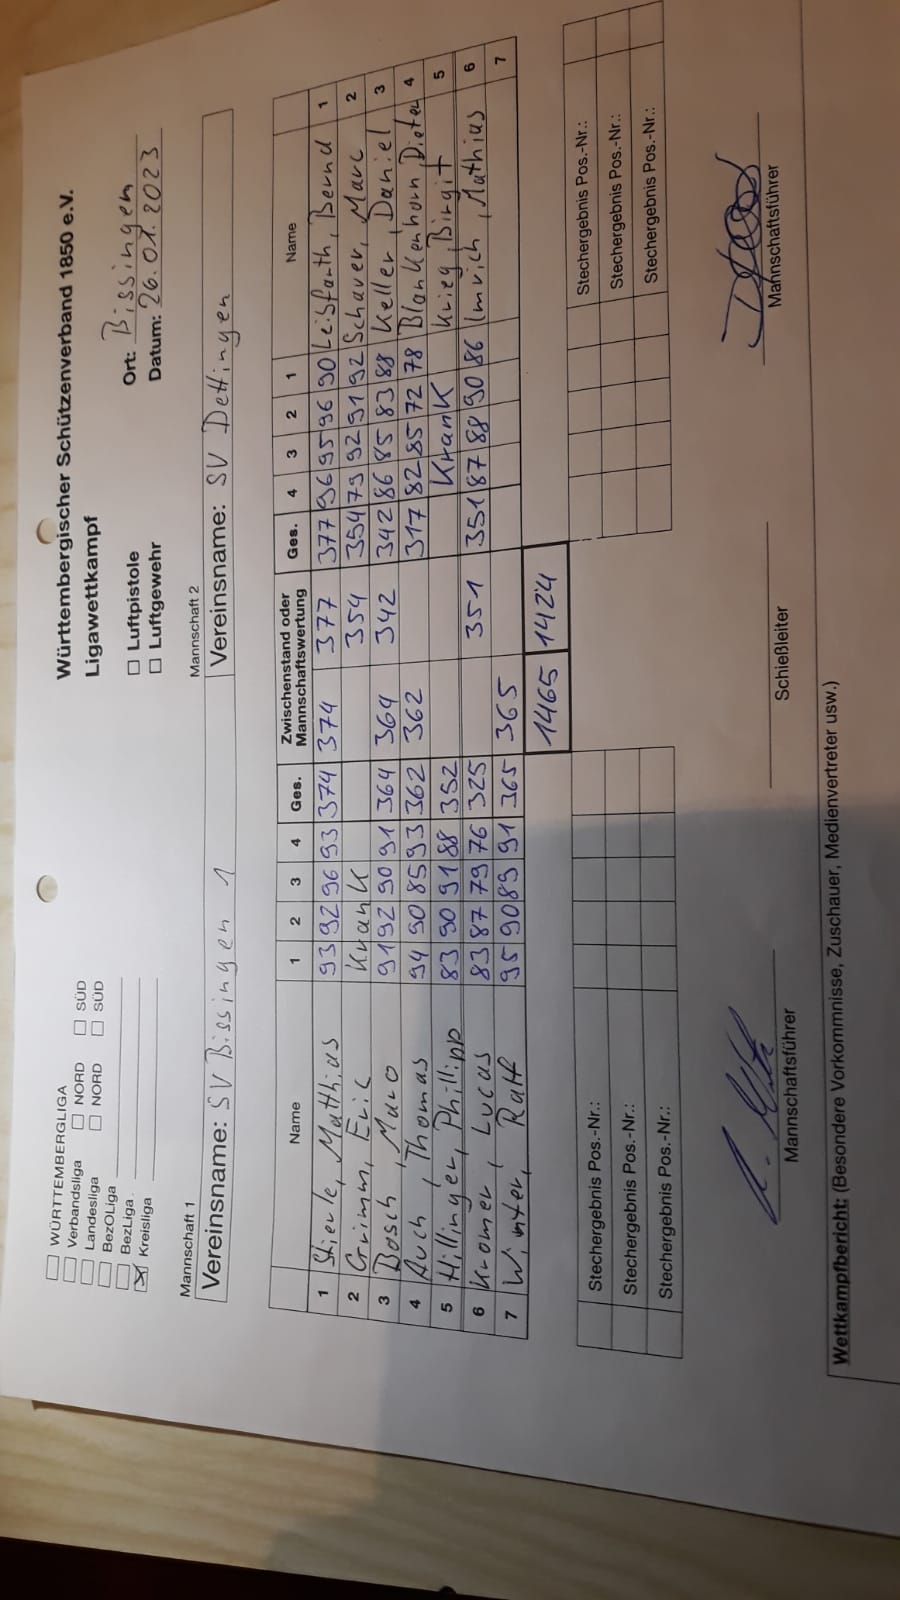 Württembergischer Schützenverband 1850 e.V.
Ligawettkampf
Ort: Bissingen
Datum: 26.01.2023
☐ WÜRTTEMBERGLIGA
☐ Verbandsliga ☐ NORD ☐ SÜD
☐ Landesliga ☐ NORD ☐ SÜD
☐ BezOLiga
☐ BezLiga
☒ Kreisliga
☐ Luftpistole
☐ Luftgewehr
Mannschaft 1 Mannschaft 2
Vereinsname: SV Bissingen 1 Vereinsname: SV Dettingen
Name 1 2 3 4 Ges. Zwischenstand oder Mannschaftswertung Ges. 4 3 2 1 Name
1 Stierle, Matthias 93 92 96 93 374 374 377 377 96 95 96 90 Leisfanth, Bernd 1
2 Grimm, Eric Krank 354 354 79 92 91 92 Schauer, Marc 2
3 Bosch, Maro 91 92 90 91 364 364 342 342 86 85 83 88 Keller, Daniel 3
4 Auch, Thomas 94 90 85 93 362 362 317 82 85 72 78 Blankenhorn Dieter 4
5 Hillinger, Phillipp 83 90 91 88 352 Krank Krieg, Birgit 5
6 Kromer, Lucas 83 87 79 76 325 351 351 87 88 90 86 Imrich, Mathias 6
7 Winter, Ralf 95 90 89 91 365 365 7
1465 1424
Stechergebnis Pos.-Nr.: Stechergebnis Pos.-Nr.:
Stechergebnis Pos.-Nr.: Stechergebnis Pos.-Nr.:
Stechergebnis Pos.-Nr.: Stechergebnis Pos.-Nr.:
Mannschaftsführer Schießleiter Mannschaftsführer
Wettkampfbericht: (Besondere Vorkommnisse, Zuschauer, Medienvertreter usw.)